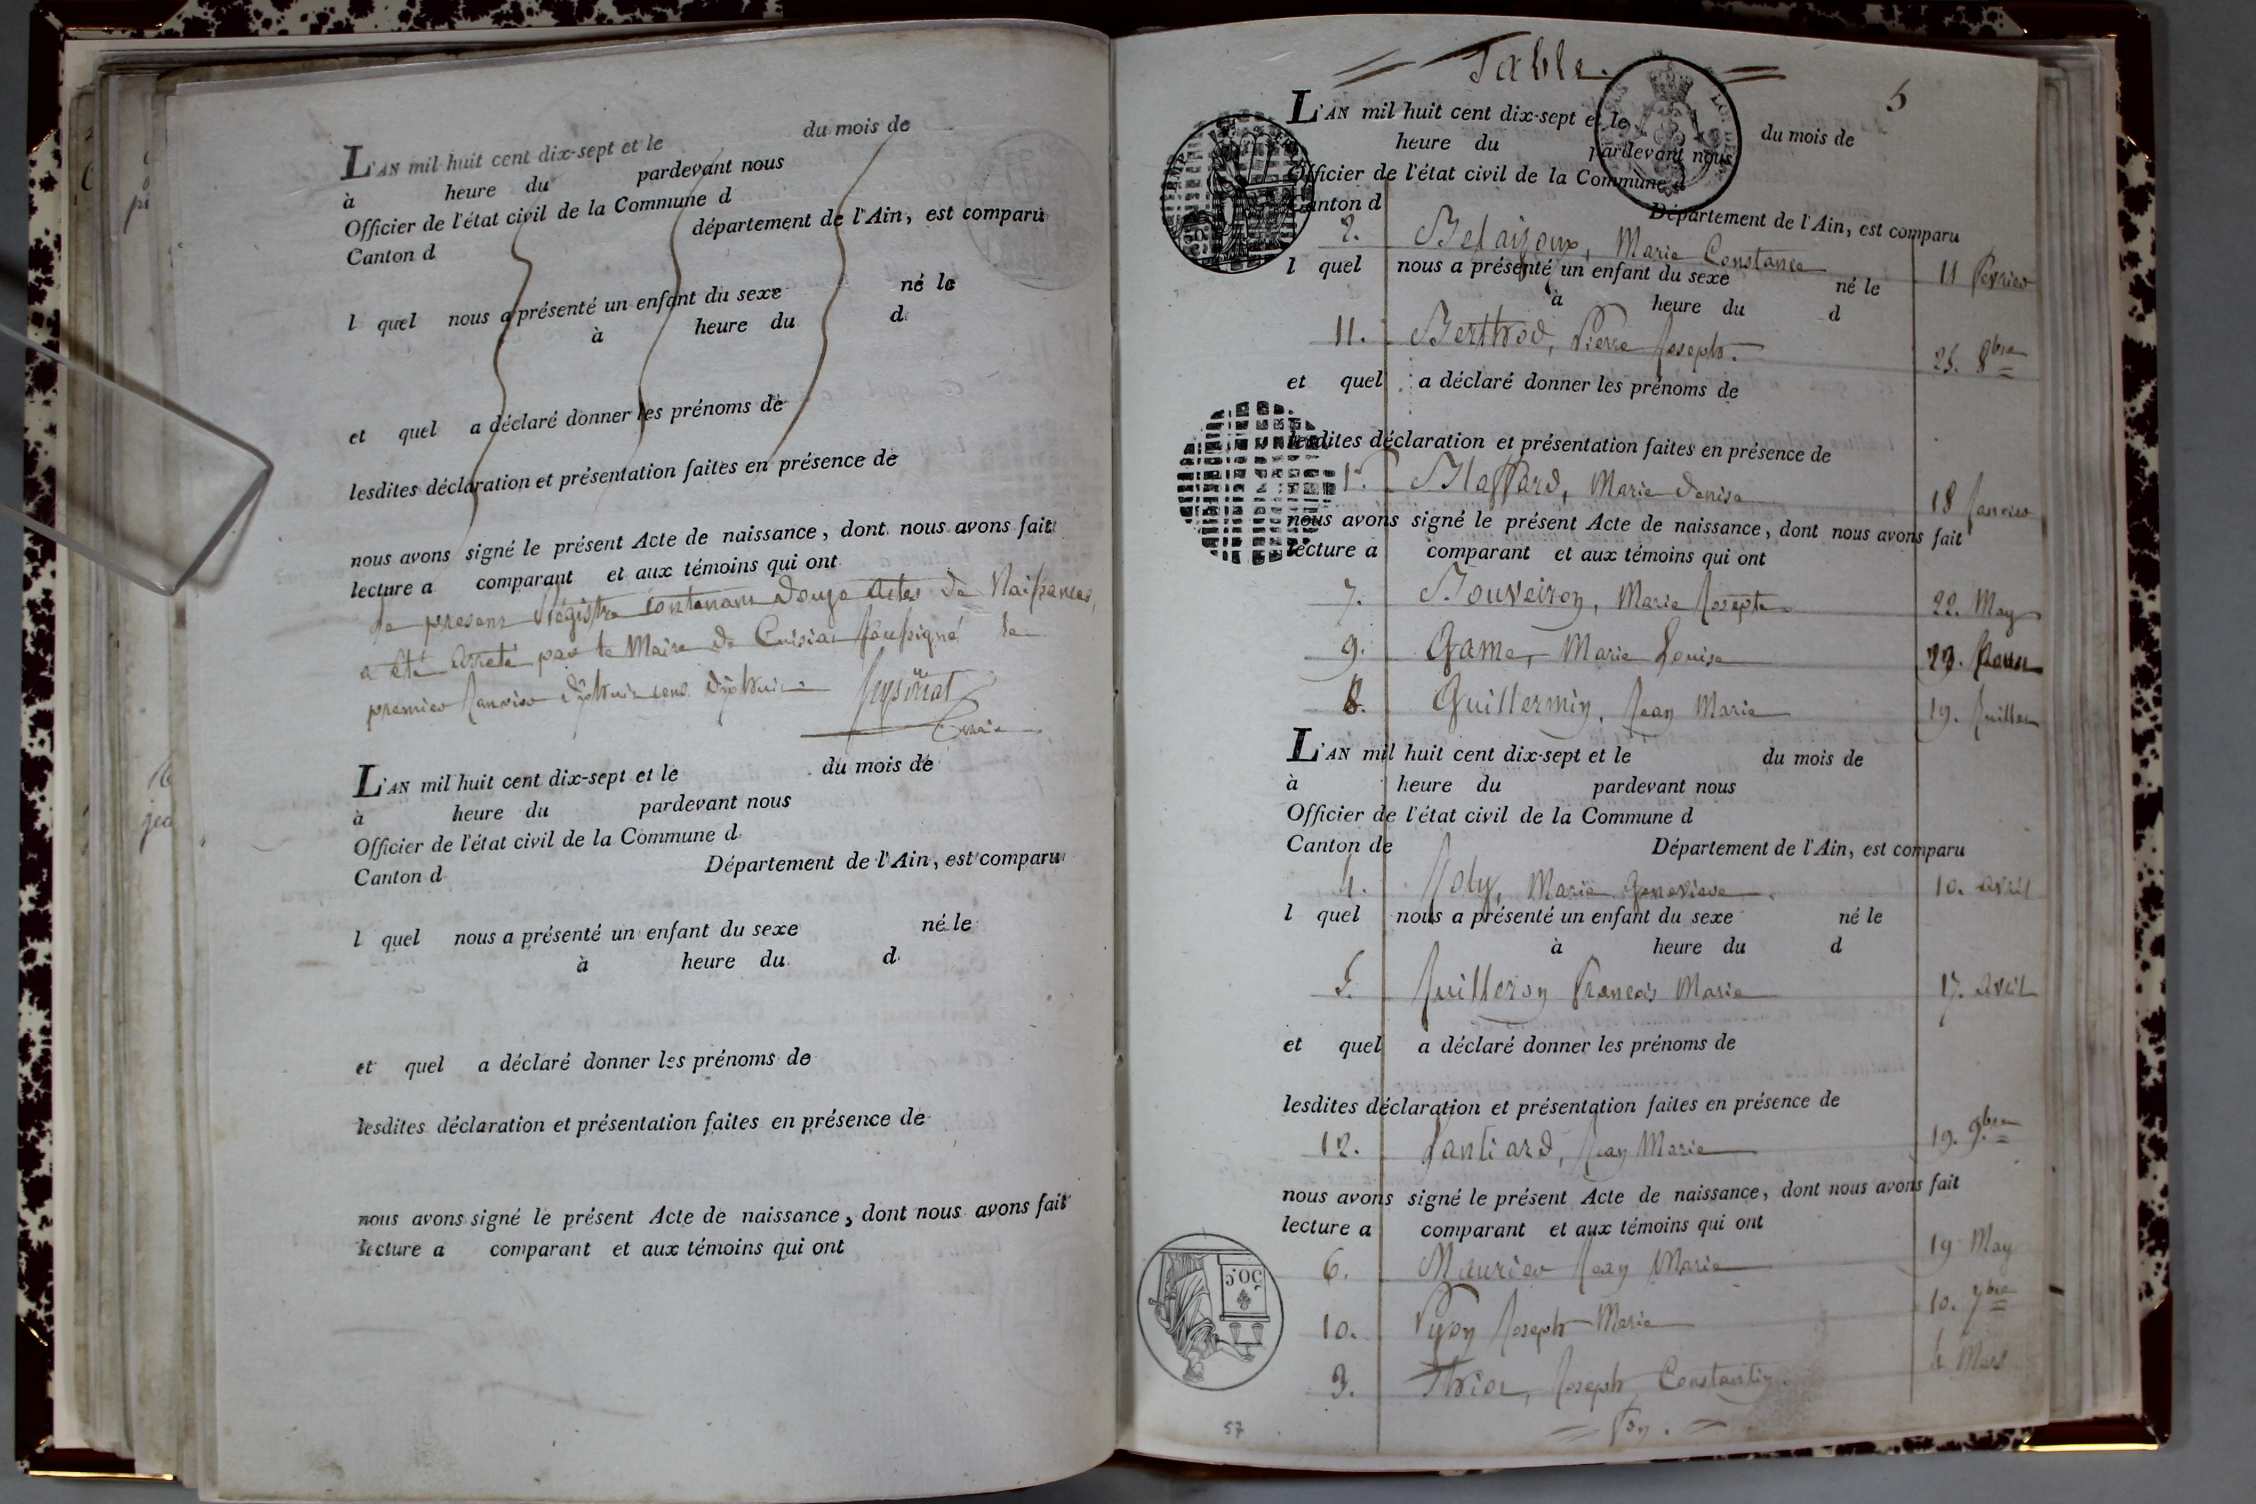 L'AN mil huit cent dix-sept et le du mois de
à heure du pardevant nous
Officier de l'état civil de la Commune d
Canton d département de l'Ain, est comparu
l quel nous a présenté un enfant du sexe né le
à heure du d
et quel a déclaré donner les prénoms de
lesdites déclaration et présentation faites en présence de
nous avons signé le présent Acte de naissance, dont nous avons fait
lecture a comparant et aux témoins qui ont
Le present Régistre contenant douze actes de Naissances,
a été arreté par le Maire de Cuisiat soussigné le
premier Janvier dixhuit cent dixhuit
Maire
L'AN mil huit cent dix-sept et le du mois de
à heure du pardevant nous
Officier de l'état civil de la Commune d
Canton d Département de l'Ain, est comparu
l quel nous a présenté un enfant du sexe né le
à heure du d
et quel a déclaré donner les prénoms de
lesdites déclaration et présentation faites en présence de
nous avons signé le présent Acte de naissance, dont nous avons fait
lecture a comparant et aux témoins qui ont
Table.
5
L'AN mil huit cent dix-sept et le du mois de
heure du pardevant nous
Officier de l'état civil de la Commune d
Canton d Département de l'Ain, est comparu
2. Marie Constance 11 fevrier
l quel nous a présenté un enfant du sexe né le
à heure du d
11. Berthod, Pierre Joseph. 25. 8bre
et quel a déclaré donner les prénoms de
lesdites déclaration et présentation faites en présence de
1. Blaffard, Marie denise 18 Janvier
nous avons signé le présent Acte de naissance, dont nous avons fait
lecture a comparant et aux témoins qui ont
7. Bouveiron, Marie Josepte 22. May
9. Game, Marie Louise 23.
8. Guillermin, Jean Marie 19. Juillet
L'AN mil huit cent dix-sept et le du mois de
à heure du pardevant nous
Officier de l'état civil de la Commune d
Canton de Département de l'Ain, est comparu
4. Joly, Marie Genevieve. 10. avril
l quel nous a présenté un enfant du sexe né le
à heure du d
5. Juilleron François Marie 17. avril
et quel a déclaré donner les prénoms de
lesdites déclaration et présentation faites en présence de
12. Lantiard, Jean Marie 19. 9bre
nous avons signé le présent Acte de naissance, dont nous avons fait
lecture a comparant et aux témoins qui ont
6. Maurier Jean Marie 19 May
10. Joseph Marie 10. 7bre
3. Joseph Constantin. 4 Mars
fin.
57
50 c.